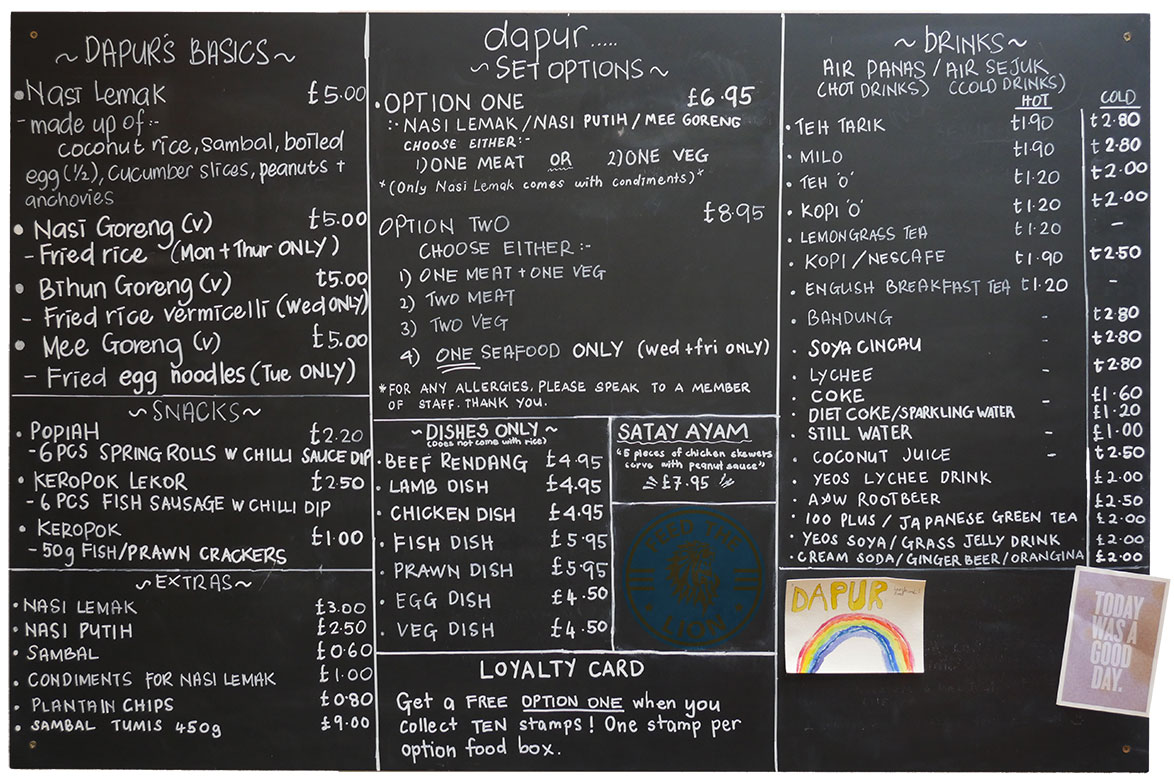 ~DAPUR'S BASICS~
•Nasi Lemak £5.00
- made up of :-
coconut rice, sambal, boiled
egg (½), cucumber slices, peanuts +
anchovies
• Nasi Goreng (v) £5.00
- Fried rice (Mon + Thur ONLY)
• Bihun Goreng (v) £5.00
- Fried rice vermicelli (Wed ONLY)
• Mee Goreng (v) £5.00
- Fried egg noodles (Tue ONLY)
~SNACKS~
• POPIAH £2.20
- 6 PCS SPRING ROLLS W CHILLI SAUCE DIP
• KEROPOK LEKOR £2.50
- 6 PCS FISH SAUSAGE W CHILLI DIP
• KEROPOK £1.00
- 50g FISH/PRAWN CRACKERS
~EXTRAS~
• NASI LEMAK £3.00
• NASI PUTIH £2.50
• SAMBAL £0.60
• CONDIMENTS FOR NASI LEMAK £1.00
• PLANTAIN CHIPS £0.80
• SAMBAL TUMIS 450g £9.00
dapur.....
~SET OPTIONS~
• OPTION ONE £6.95
:- NASI LEMAK / NASI PUTIH / MEE GORENG
CHOOSE EITHER:-
1) ONE MEAT OR 2) ONE VEG
*(Only Nasi Lemak comes with condiments)*
OPTION TWO £8.95
CHOOSE EITHER :-
1) ONE MEAT + ONE VEG
2) TWO MEAT
3) TWO VEG
4) ONE SEAFOOD ONLY (wed + fri ONLY)
*FOR ANY ALLERGIES, PLEASE SPEAK TO A MEMBER
OF STAFF. THANK YOU.
~DISHES ONLY~
(Does not come with rice)
• BEEF RENDANG £4.95
• LAMB DISH £4.95
• CHICKEN DISH £4.95
• FISH DISH £5.95
• PRAWN DISH £5.95
• EGG DISH £4.50
• VEG DISH £4.50
SATAY AYAM
"5 pieces of chicken skewers
serve with peanut sauce"
£7.95
FEED THE
LION
LOYALTY CARD
Get a FREE OPTION ONE when you
collect TEN stamps! One stamp per
option food box.
~DRINKS~
AIR PANAS / AIR SEJUK
(HOT DRINKS) (COLD DRINKS)
HOT COLD
• TEH TARIK £1.90 £2.80
• MILO £1.90 £2.80
• TEH 'O' £1.20 £2.00
• KOPI 'O' £1.20 £2.00
• LEMONGRASS TEA £1.20 -
• KOPI / NESCAFE £1.90 £2.50
• ENGLISH BREAKFAST TEA £1.20 -
• BANDUNG - £2.80
• SOYA CINCAU - £2.80
• LYCHEE - £2.80
• COKE £1.60
• DIET COKE/SPARKLING WATER £1.20
• STILL WATER £1.00
• COCONUT JUICE - £2.50
• YEOS LYCHEE DRINK £2.00
• A&W ROOTBEER £2.50
• 100 PLUS / JAPANESE GREEN TEA £2.00
• YEOS SOYA / GRASS JELLY DRINK £2.00
• CREAM SODA/GINGER BEER/ORANGINA £2.00
DAPUR
TODAY
WAS A
GOOD
DAY.